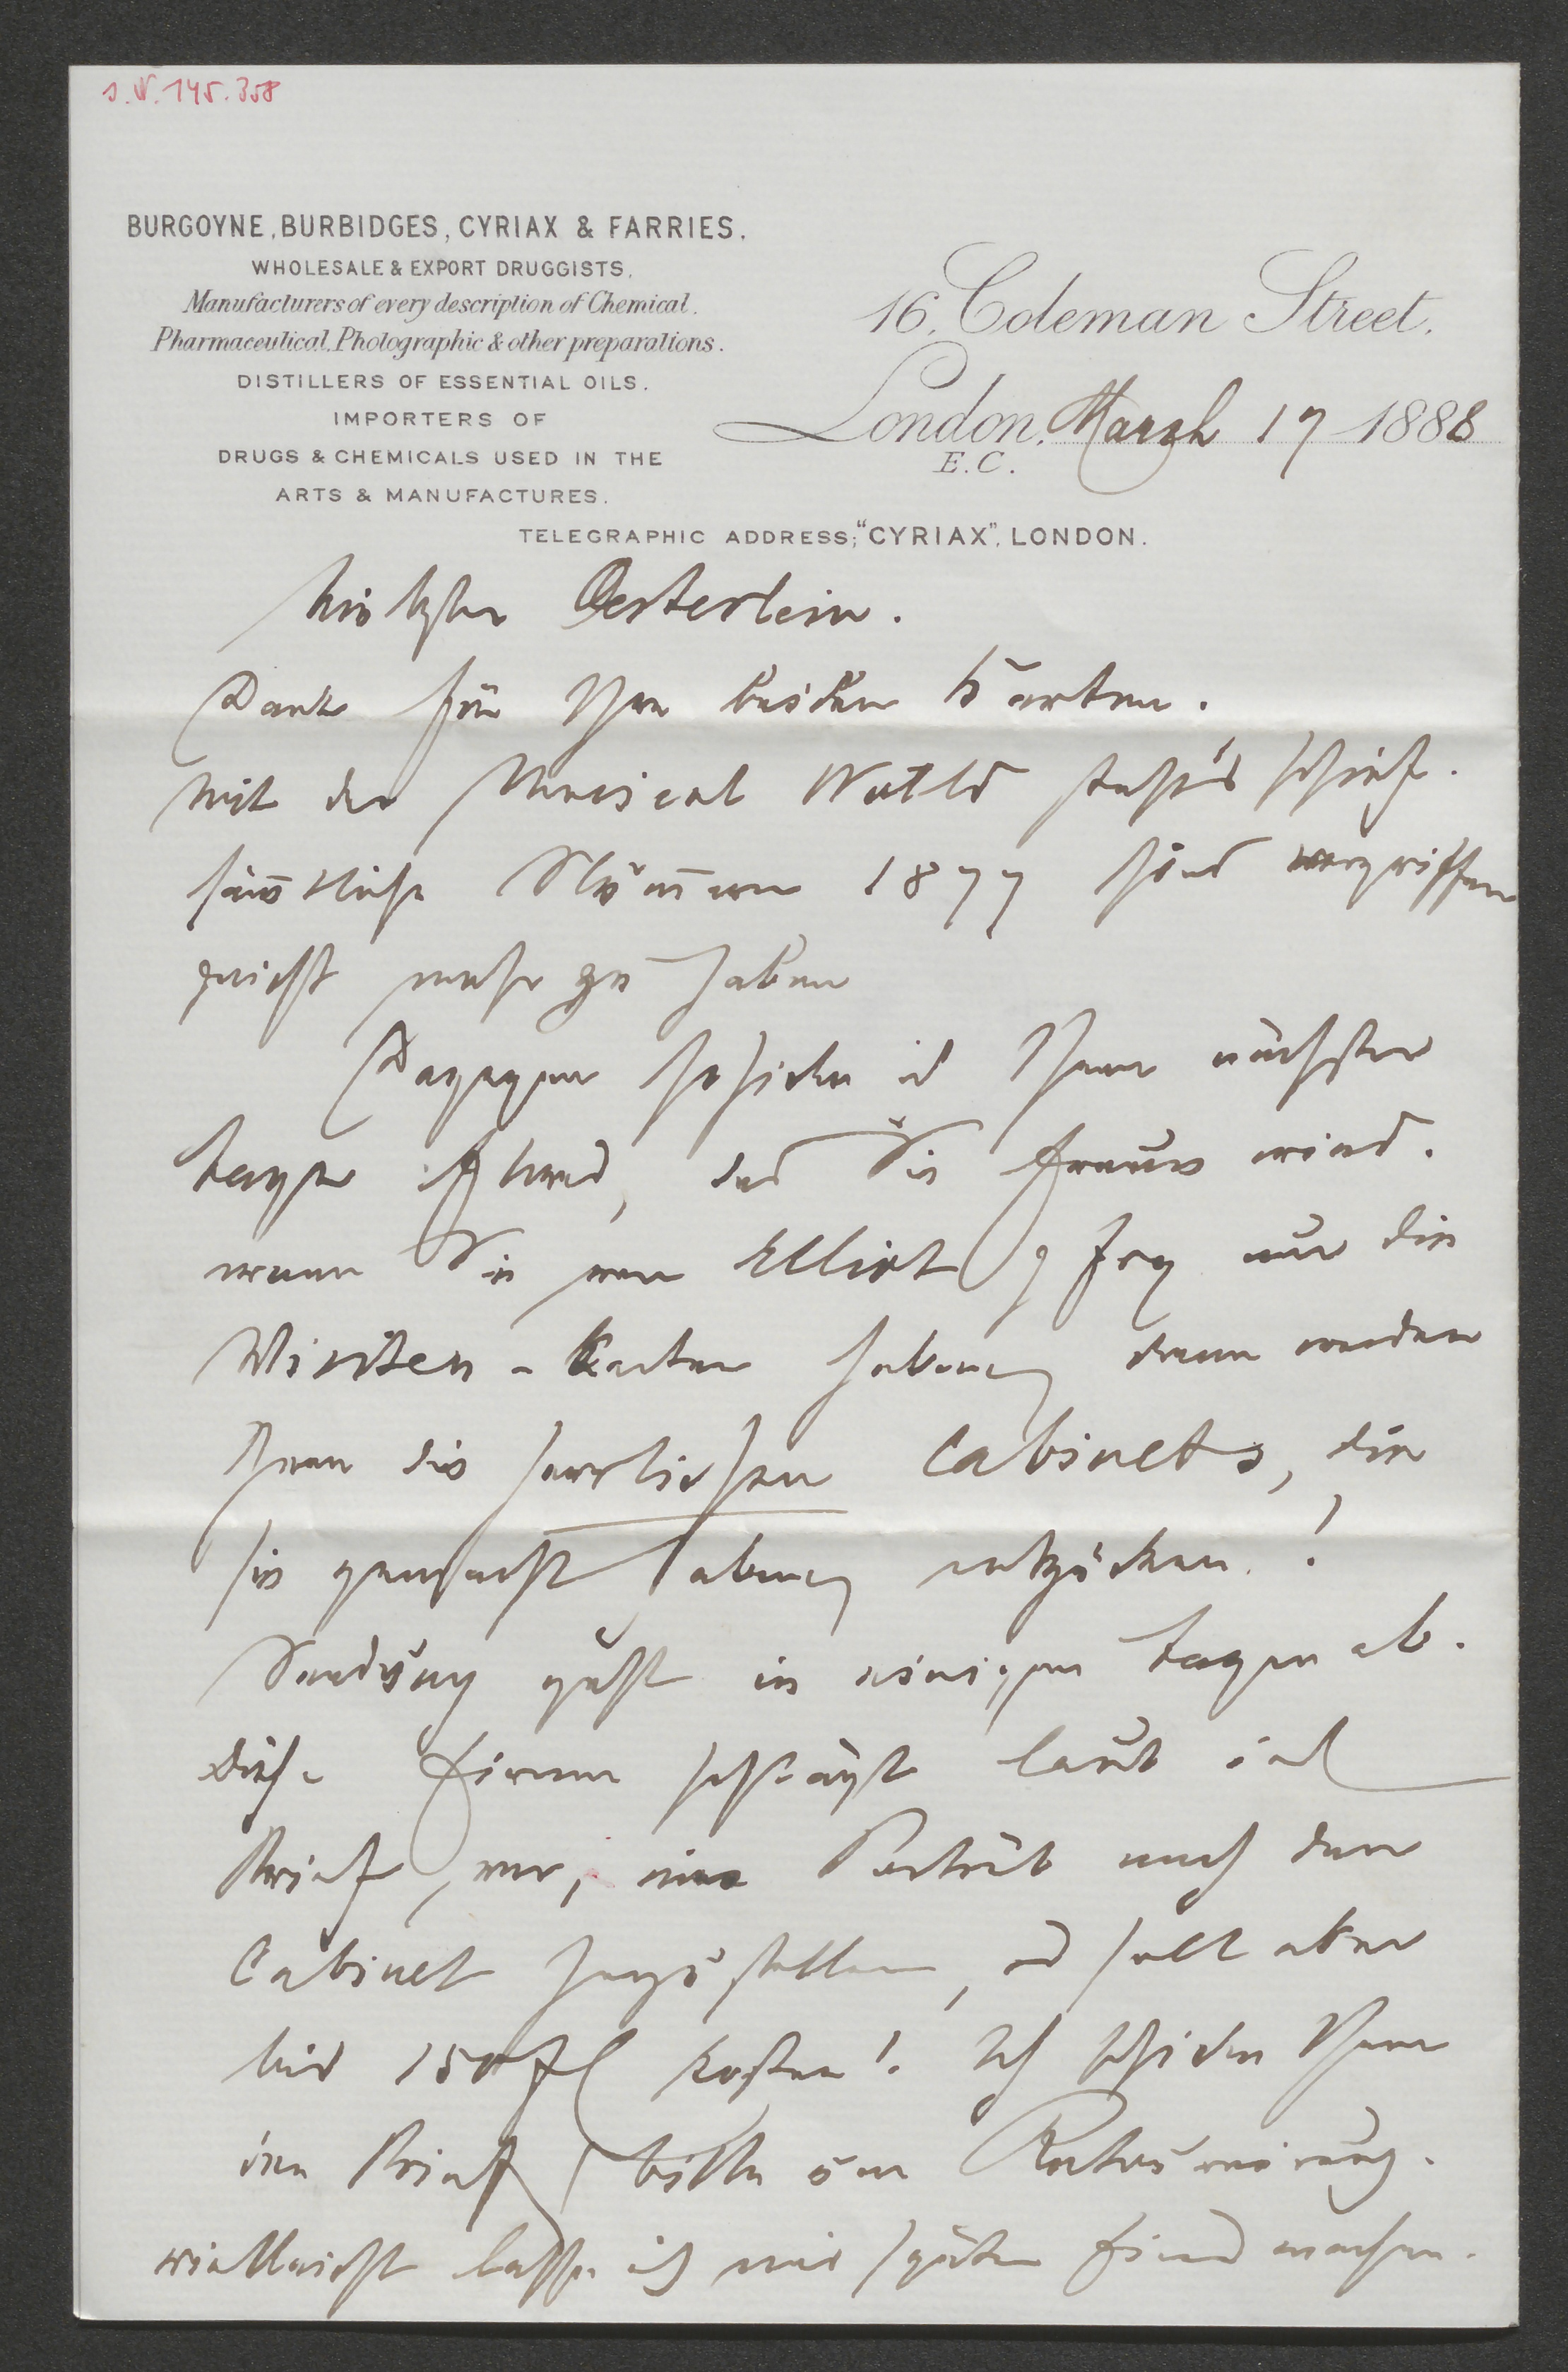 I.N. 145.358
BURGOYNE, BURBIDGES, CYRIAX & FARRIES.
WHOLESALE & EXPORT DRUGGISTS,
Manufacturers of every description of Chemical,
Pharmaceutical, Photographic & other preparations.
DISTILLERS OF ESSENTIAL OILS.
IMPORTERS OF
DRUGS & CHEMICALS USED IN THE
ARTS & MANUFACTURES.
16, Coleman Street,
London, March 17 1888
E.C.
TELEGRAPHIC ADDRESS; "CYRIAX", LONDON.
Oesterlein.
Dank für Ihre beiden Karten.
Mit der Musical World steht's schief.
sämtliche Nummern 1877 sind vergriffen
nicht mehr zu haben
Dagegen schicke ich Ihnen nächster
Tage etwas, das Sie freuen wird.
wenn Sie von Elliot & Fry nur die
Visiten-Karten haben, dann werden
Ihnen die herrlichen Cabinets, die
sie gemacht haben, entzücken!
Sendung geht in einigen Tagen ab.
Diese Firma schlägt laut
Brief vor, ein Porträt nach dem
Cabinet herzustellen, es soll aber
bis 150 fl kosten! Ich schicke Ihnen
den Brief, bitte um Retournirung.
vielleicht lasse ich mir später eins machen.